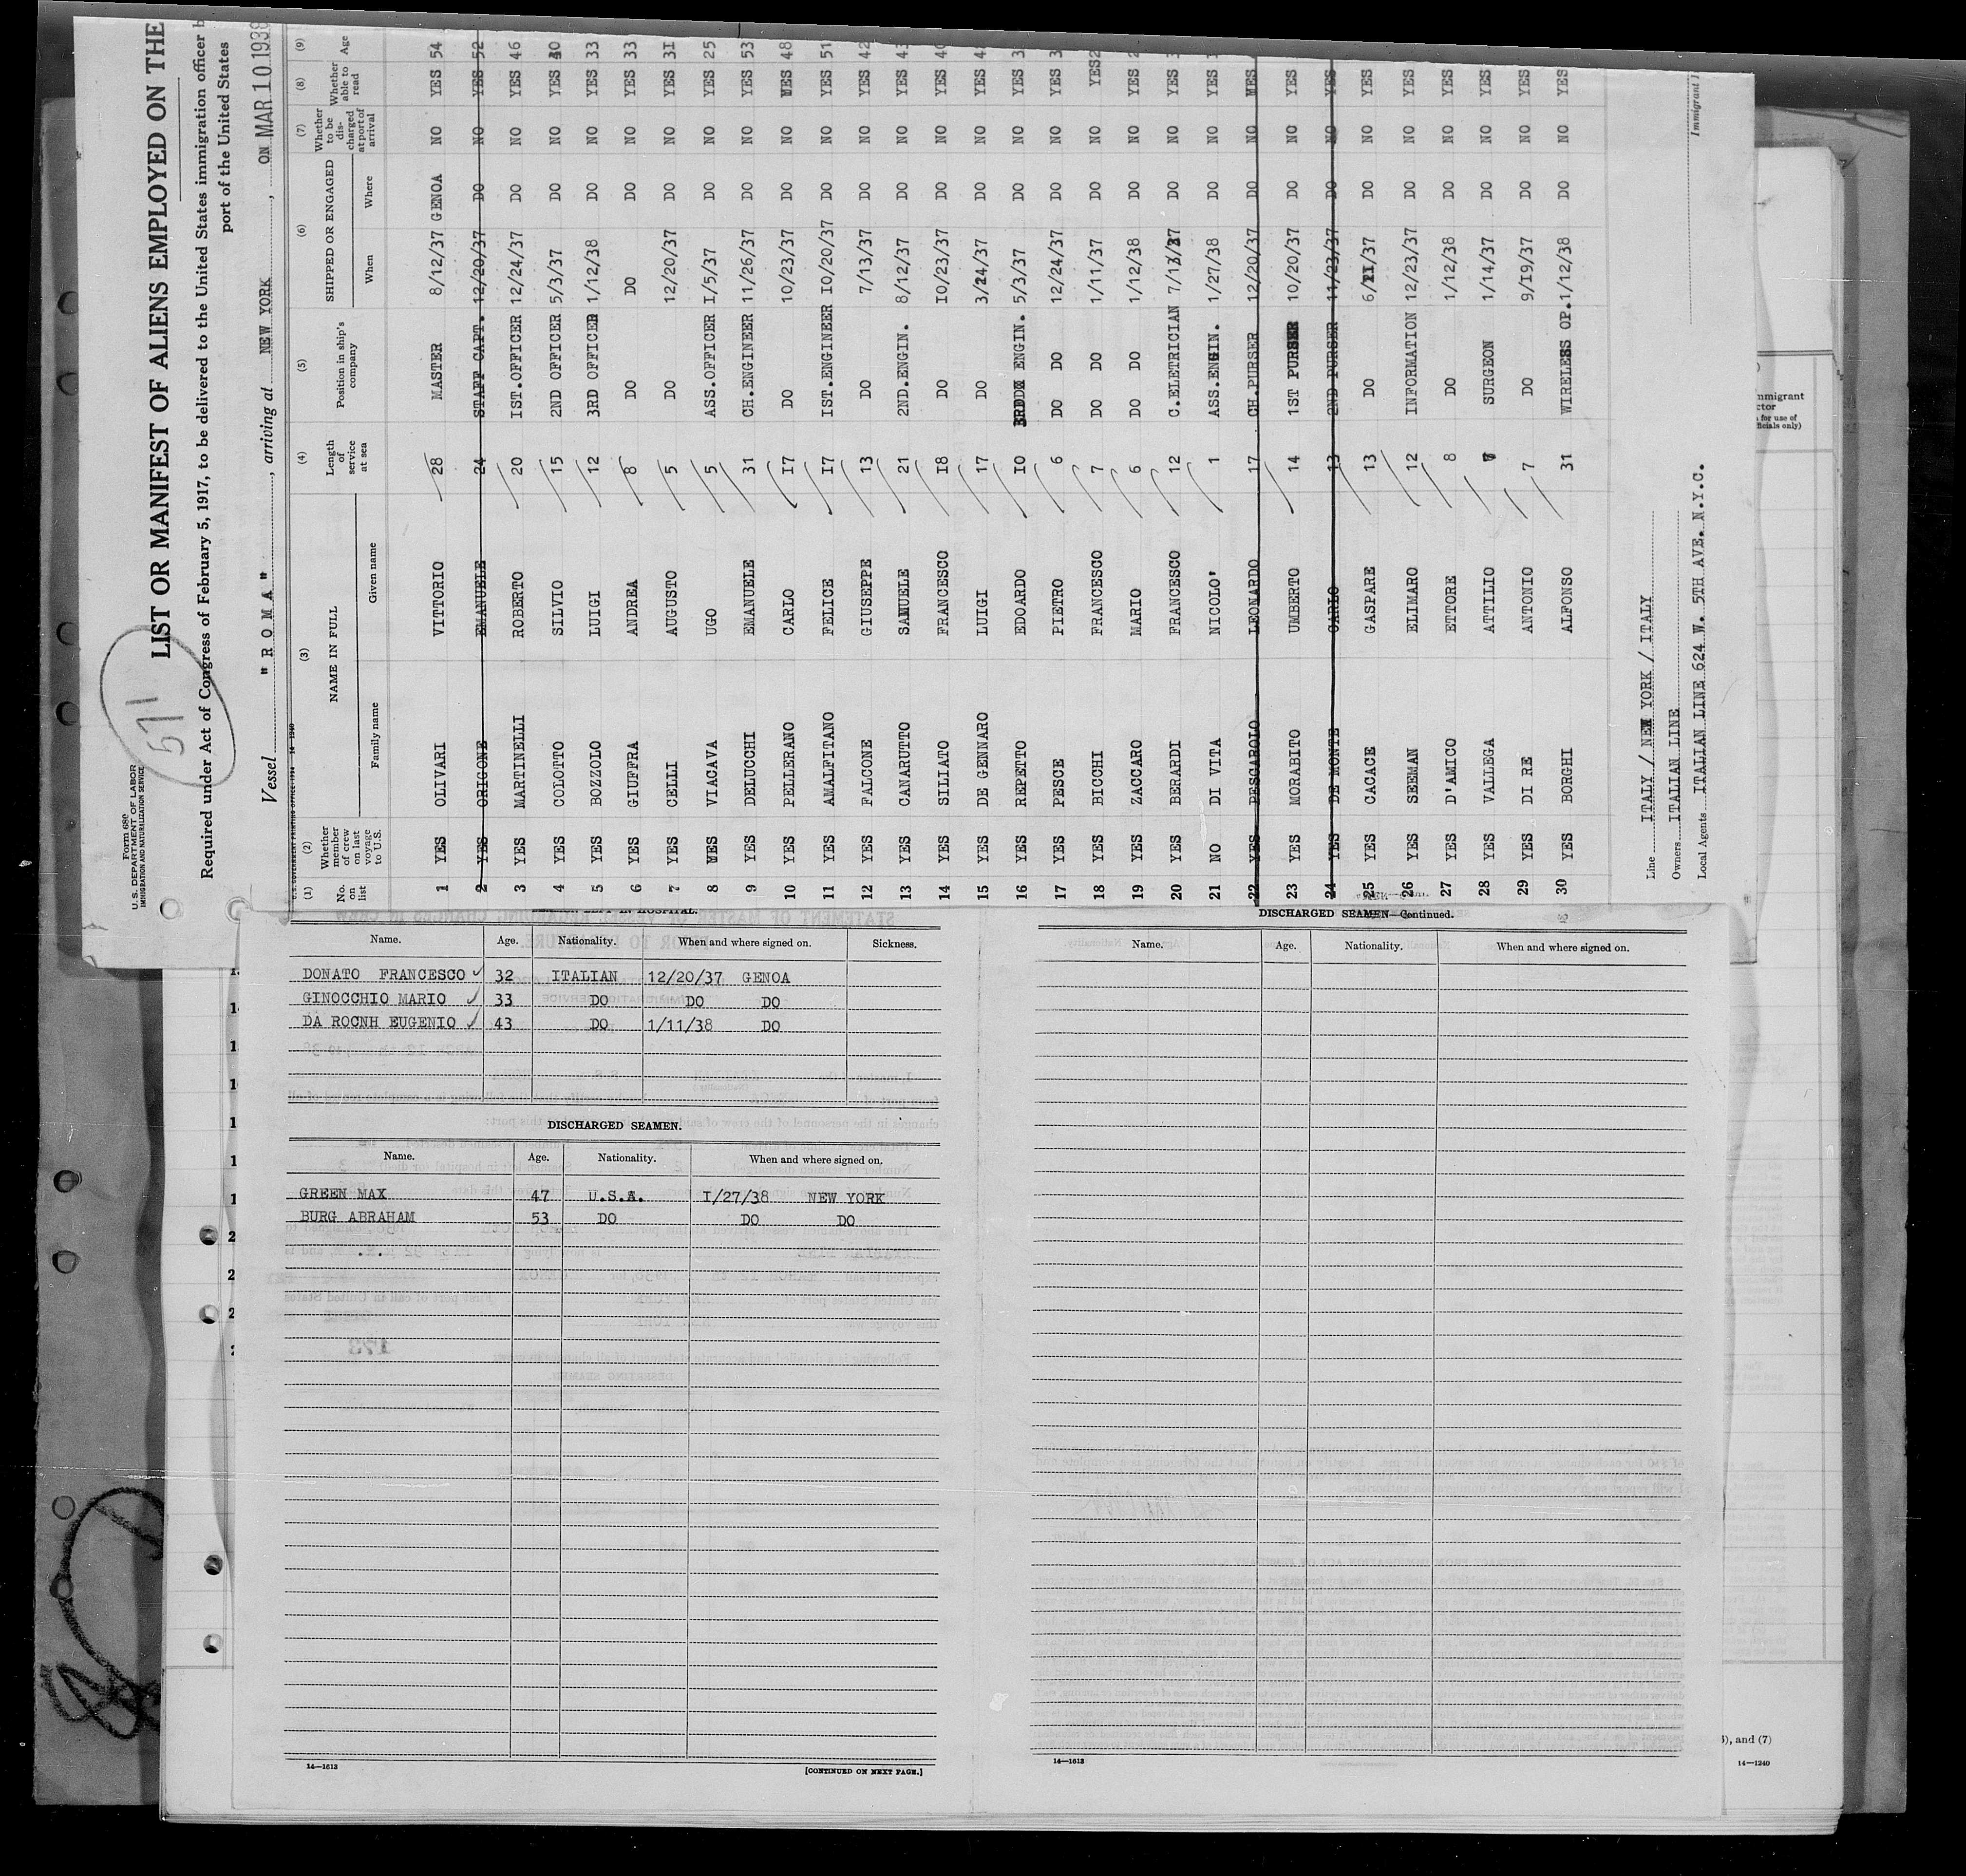 Form 680
U.S. DEPARTMENT OF LABOR
IMMIGRATION AND NATURALIZATION SERVICE
571
LIST OR MANIFEST OF ALIENS EMPLOYED ON THE
Required under Act of Congress of February 5, 1917, to be delivered to the United States immigration officer b
port of the United States
Vessel "ROMA", arriving at NEW YORK, ON MAR 10 1938
U.S. GOVERNMENT PRINTING OFFICE: 1934 14-1240
(1) (2) (3) (4) (5) (6) (7) (8) (9)
No. on list Whether member of crew on last voyage to U.S. NAME IN FULL Family name Given name Length of service at sea Position in ship's company SHIPPED OR ENGAGED When Where Whether to be discharged at port of arrival Whether able to read Age
1 YES OLIVARI VITTORIO 28 MASTER 8/12/37 GENOA NO YES 54
2 YES ORIGONE EMANUELE 24 STAFF CAPT. 12/20/37 DO NO YES 52
3 YES MARTINELLI ROBERTO 20 IST.OFFICER 12/24/37 DO NO YES 46
4 YES COLOTTO SILVIO 15 2ND OFFICER 5/3/37 DO NO YES 40
5 YES BOZZOLO LUIGI 12 3RD OFFICER 1/12/38 DO NO YES 33
6 YES GIUFFRA ANDREA 8 DO DO DO NO YES 33
7 YES CELLI AUGUSTO 5 DO 12/20/37 DO NO YES 3I
8 YES VIACAVA UGO 5 ASS.OFFICER I/5/37 DO NO YES 25
9 YES DELUCCHI EMANUELE 31 CH.ENGINEER 11/26/37 DO NO YES 53
10 YES PELLERANO CARLO I7 DO 10/23/37 DO NO YES 48
11 YES AMALFITANO FELICE I7 IST.ENGINEER IO/20/37 DO NO YES 51
12 YES FALCONE GIUSEPPE 13 DO 7/13/37 DO NO YES 42
13 YES CANARUTTO SAMUELE 21 2ND.ENGIN. 8/12/37 DO NO YES 43
14 YES SILIATO FRANCESCO I8 DO IO/23/37 DO NO YES
15 YES DE GENNARO LUIGI 17 DO 3/24/37 DO NO YES
16 YES REPETTO EDOARDO IO 3RD ENGIN. 5/3/37 DO NO YES
17 YES PESCE PIETRO 6 DO DO 12/24/37 DO NO YES
18 YES BICCHI FRANCESCO 7 DO DO 1/11/37 DO NO YES
19 YES ZACCARO MARIO 6 DO DO 1/12/38 DO NO YES
20 YES BERARDI FRANCESCO 12 C.ELETRICIAN 7/13/37 DO NO YES
21 NO DI VITA NICOLO' 1 ASS.ENGIN. 1/27/38 DO NO YES
22 YES PESCAROLO LEONARDO 17 CH.PURSER 12/20/37 DO NO YES
23 YES MORABITO UMBERTO 14 1ST PURSER 10/20/37 DO NO YES
24 YES DE MONTE CARLO 13 2ND PURSER 11/23/37 DO NO YES
25 YES CACACE GASPARE 13 DO 6/21/37 DO NO YES
26 YES SEEMAN ELIMARO 12 INFORMATION 12/23/37 DO NO YES
27 YES D'AMICO ETTORE 8 DO 1/12/38 DO NO YES
28 YES VALLEGA ATTILIO SURGEON 1/14/37 DO NO YES
29 YES DI RE ANTONIO 7 DO 9/19/37 DO NO YES
30 YES BORGHI ALFONSO 31 WIRELESS OP. 1/12/38 DO NO YES
Line ITALY / NEW YORK / ITALY
Owners ITALIAN LINE
Local Agents ITALIAN LINE 624 W. 5TH AVE. N.Y.C.
Immigrant I
Name. Age. Nationality. When and where signed on. Sickness.
DONATO FRANCESCO 32 ITALIAN 12/20/37 GENOA
GINOCCHIO MARIO 33 DO DO DO
DA ROCNH EUGENIO 43 DO 1/11/38 DO
DISCHARGED SEAMEN.
Name. Age. Nationality. When and where signed on.
GREEN MAX 47 U.S.A. I/27/38 NEW YORK
BURG ABRAHAM 53 DO DO DO
14—1613
[CONTINUED ON NEXT PAGE.]
DISCHARGED SEAMEN—Continued.
Name. Age. Nationality. When and where signed on.
14—1613
mmigrant
ctor
for use of
ficials only)
), and (7)
14—1240